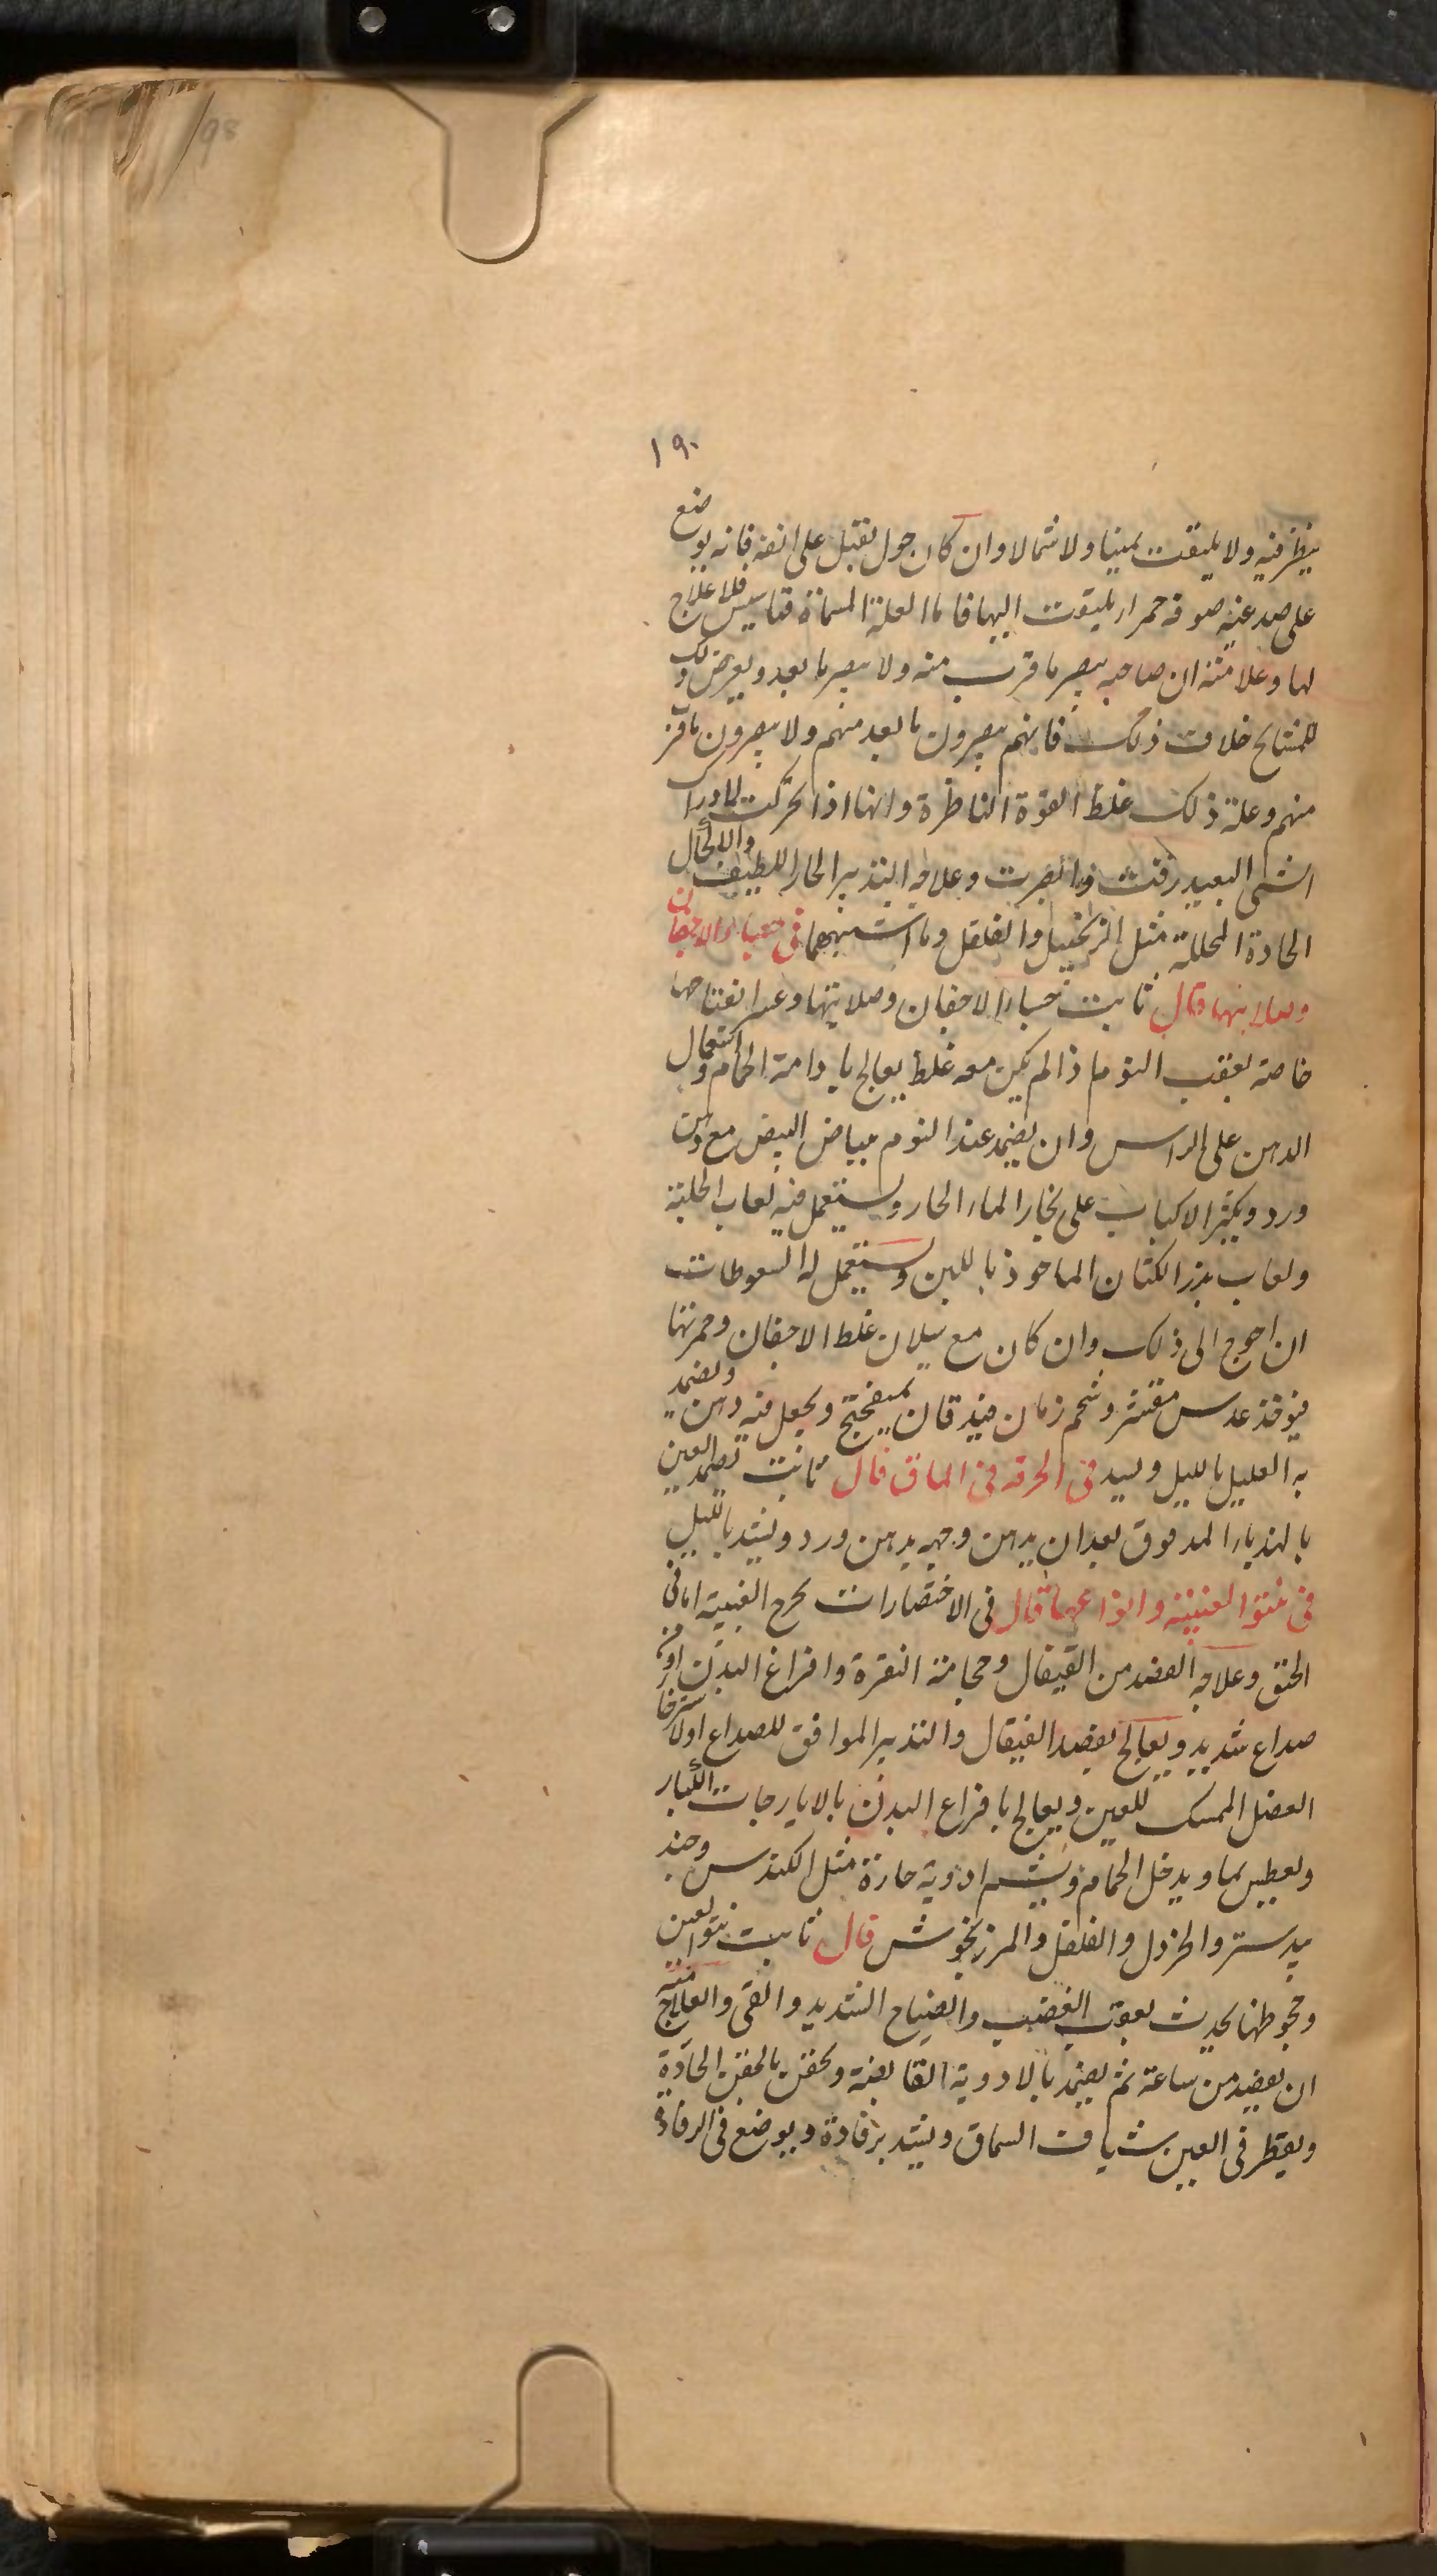 98
١٩٠
ينظر فيه ولا يلتفت يمينا ولا شمالا وان كان حول تقبل على انفه فانه يوضع
على صدغيه صوفة حمراء ليلتفت اليها فاما العلة المسماة فلا علاج
لها وعلامته ان صاحبه يبصر ما قرب منه ولا يبصر ما بعد ويعرض
للمشايخ خلاف ذلك فانهم يبصرون ما بعد منهم ولا يبصرون ما قرب
منهم وعلة ذلك غلظ القوة الناظرة وانها اذا تحركت لادراك
الشى البعيد رقت وابصرت وعلاجه التدبير الحار اللطيف والاكحال
الحادة المحللة مثل الزنجبيل والفلفل وما اشبههما فى جساء الاجفان
وصلابتها قال ثابت جساء الاجفان وصلابتها وعسر انفتاحها
خاصة بعقب النوم اذا لم يكن معه غلظ يعالج بادامة الحمام واستعمال
الدهن على الراس وان يضمد عند النوم ببياض البيض مع دهن
ورد ويكثر الاكباب على بخار الماء الحار ويستعمل فيه لعاب الحلبة
ولعاب بزر الكتان الماخوذ باللبن ويستعمل له السعوطات
ان احوج الى ذلك وان كان مع سيلان غلظ الاجفان وحمرتها
فيوخذ عدس مقشر وشحم رمان فيدقان بميفختج ويجعل فيه دهن ويضمد
به العليل بالليل ويسد فى الحرقة فى الماق قال ثابت تضمد العين
بالهندباء المدقوق بعد ان يدهن وجهه بدهن ورد ويشد بالليل
فى نتو العينية وانواعها قال فى الاختصارات اما فى
الخنق وعلاجه الفصد من القيفال وحجامة النقرة وافراغ البدن
صداع شديد ويعالج بفصد القيفال والتدبير الموافق للصداع او لاسترخا
العضل الممسك للعين ويعالج بافراغ البدن بالايارجات الكبار
ويدخل الحمام ويشم ادوية حارة مثل الكندس وجند
بيدستر والخردل والفلفل والمرزنجوش قال ثابت نتو العين
وجحوظها يحدث بعقب الغضب والصياح الشديد والقى والعلاج منه
ان يفصد من ساعة ثم يضمد بالادوية القابضة ويحقن بالحقن الحادة
ويقطر فى العين شياف السماق ويشد برفادة ويوضع فى الرفادة